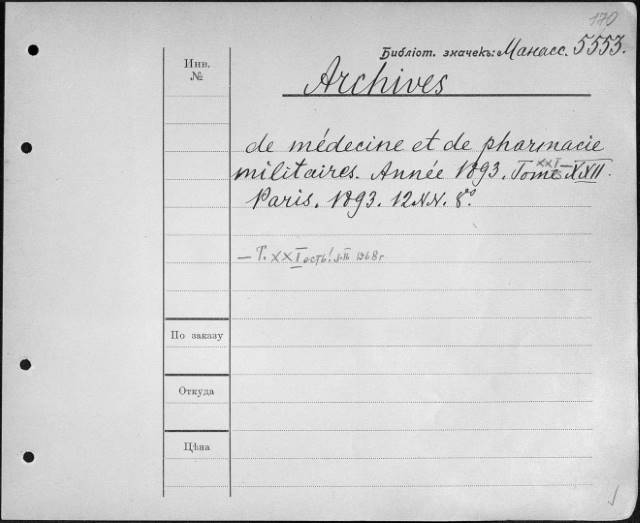 170
Инв.
№
Библіот. значекъ: Манасс. 5553.
Archives
de médecine et de pharmacie
militaires. Année 1893. Tome XXI–XXII.
Paris. 1893. 12 NN. 8°.
— Т. XXI есть! 1968 г
По заказу
Откуда
Цѣна